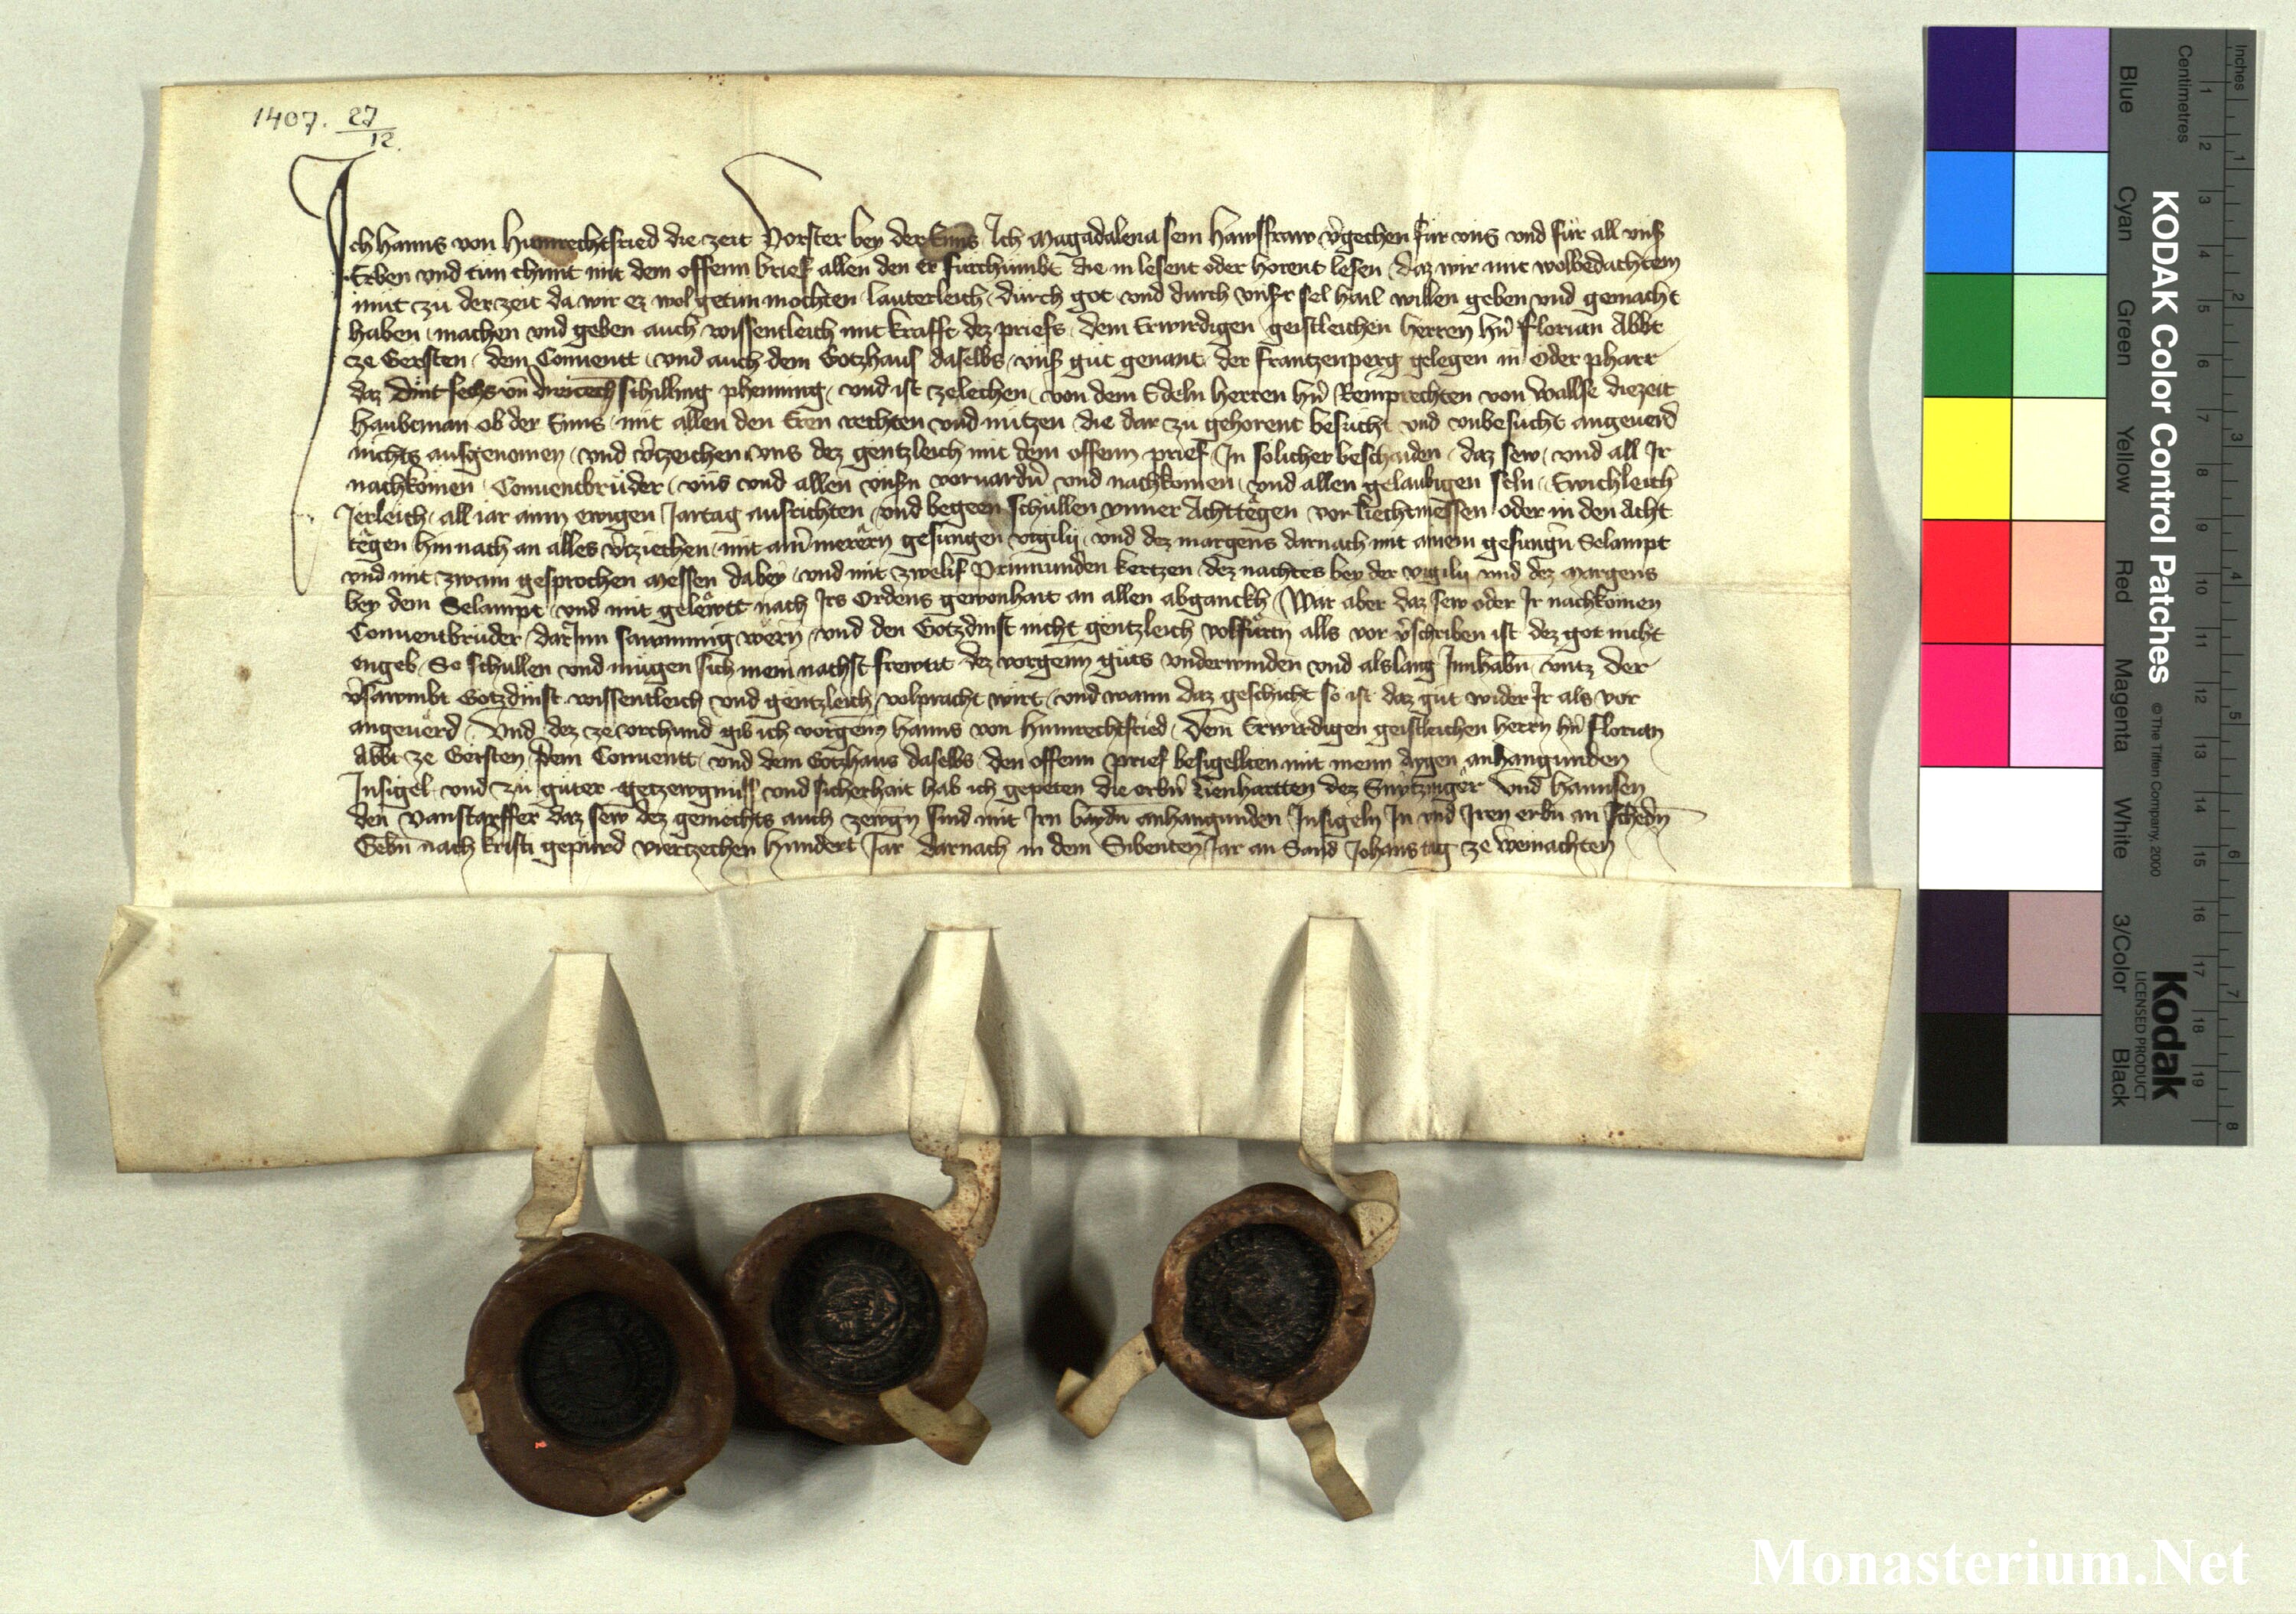 1407. 27/12.
Ich Hanns von Humrechtsried die zeit Vorster bey der Enns Ich Magadalena sein hawsfraw v̄gechen für vns vnd für all vnsr̄
Erben vnd tun chunt mit dem offenn brief allen den er fürchumbt die in lesent oder horent lesen daz wir mit wolbedachtem
mut zu der zeit da wir ez wol getun mochten lauterleich durch got vnd durch vnsr̄ sel hail willen geben vnd gemacht
haben machen vnd geben auch wissentleich mit krafft dez priefs dem Erwirdigen geistleichen herren hn̄ Florian Abbt
ze Gersten dem Conuentt vnd auch dem Gotzhaus daselbs vnsr̄ gut genant der Frantzenperg gelegen in Oder pharr
daz dint sechs vn̄ schilling phenning vnd ist zelechen von dem Edeln herren hn̄ Remprechten von Wallse diezeit
haubtman ob der Enns mit allen den Eren rechten vnd nützen die dar zu gehorent besucht vnd vnbesucht angeuerd
nichts ausgenomen vnd v̄czeichen vns dez gentzleich mit dem offenn prief In solicher beschaiden daz sew vnd all Ir
nachkomen Conuentbrüder vns vnd allen vnsn̄ voruardn̄ vnd nachkomen vnd allen gelaubigen seln Ewichleich
Jerleich all iar ainn ewigen Jartag ausrichten vnd begeen schullen ynner Achttegen vor Liechtmessen oder in den Acht
tegen hinnach an alles v̄cziechen mit ain̄ merern gesungen vigilij vnd dez margens darnach mit ainem gesungn̄ Selampt
vnd mit zwain gesprochen messen dabey vnd mit zwelif Prinnunden kertzen dez nachtes bey der vigilij vnd dez margens
bey dem Selampt vnd mit gelewtt nach Irs Ordens gewonhait an allen abganckh War aber daz sew oder Ir nachkomen
Conuentbrüder darInn sawmmig wern vnd den Gotzdinst nicht gentzleich volfürtn alls vor v̄schriben ist dez got nicht
engeb So schullen vnd mügen sich mein nachst frewnt dez vorgenn̄ guts vnderwinden vnd alslang Innhabn̄ vntz der
v̄sawmbt Gotzdinst wissentleich vnd gentzleich volpracht wirt vnd wann daz geschicht so ist daz gut wider Ir als vor
angeuerd Vnd dez ze vrchund gib ich vorgenn̄ Hanns von Humrechtsried dem Erwirdigen geistleichen herrn hn̄ Florian
Abbt ze Gersten dem Conuentt vnd dem Gotzhaus daselbs den offenn prief besigellten mit meim aygen anhangunden
Insigel vnd zu guter getzewgnüss vnd sicherhait hab ich gepeten die erbn̄ Lienhartten dez vnd Hannsen
den daz sew dez gemechts auch zewgn sind mit Irn baydn̄ anhangunden Insigeln In vnd Iren erbn̄ an schedn̄
Gebn̄ nach kristi gepurd viertzechen hundert Jar darnach in dem Sibenten Jar an Sand Johans tag ze weinachten
KODAK Color Control Patches © The Tiffen Company, 2000
Kodak LICENSED PRODUCT
Inches 1 2 3 4 5 6 7 8
Centimetres 1 2 3 4 5 6 7 8 9 10 11 12 13 14 15 16 17 18 19
Blue Cyan Green Yellow Red Magenta White 3/Color Black
Monasterium.Net